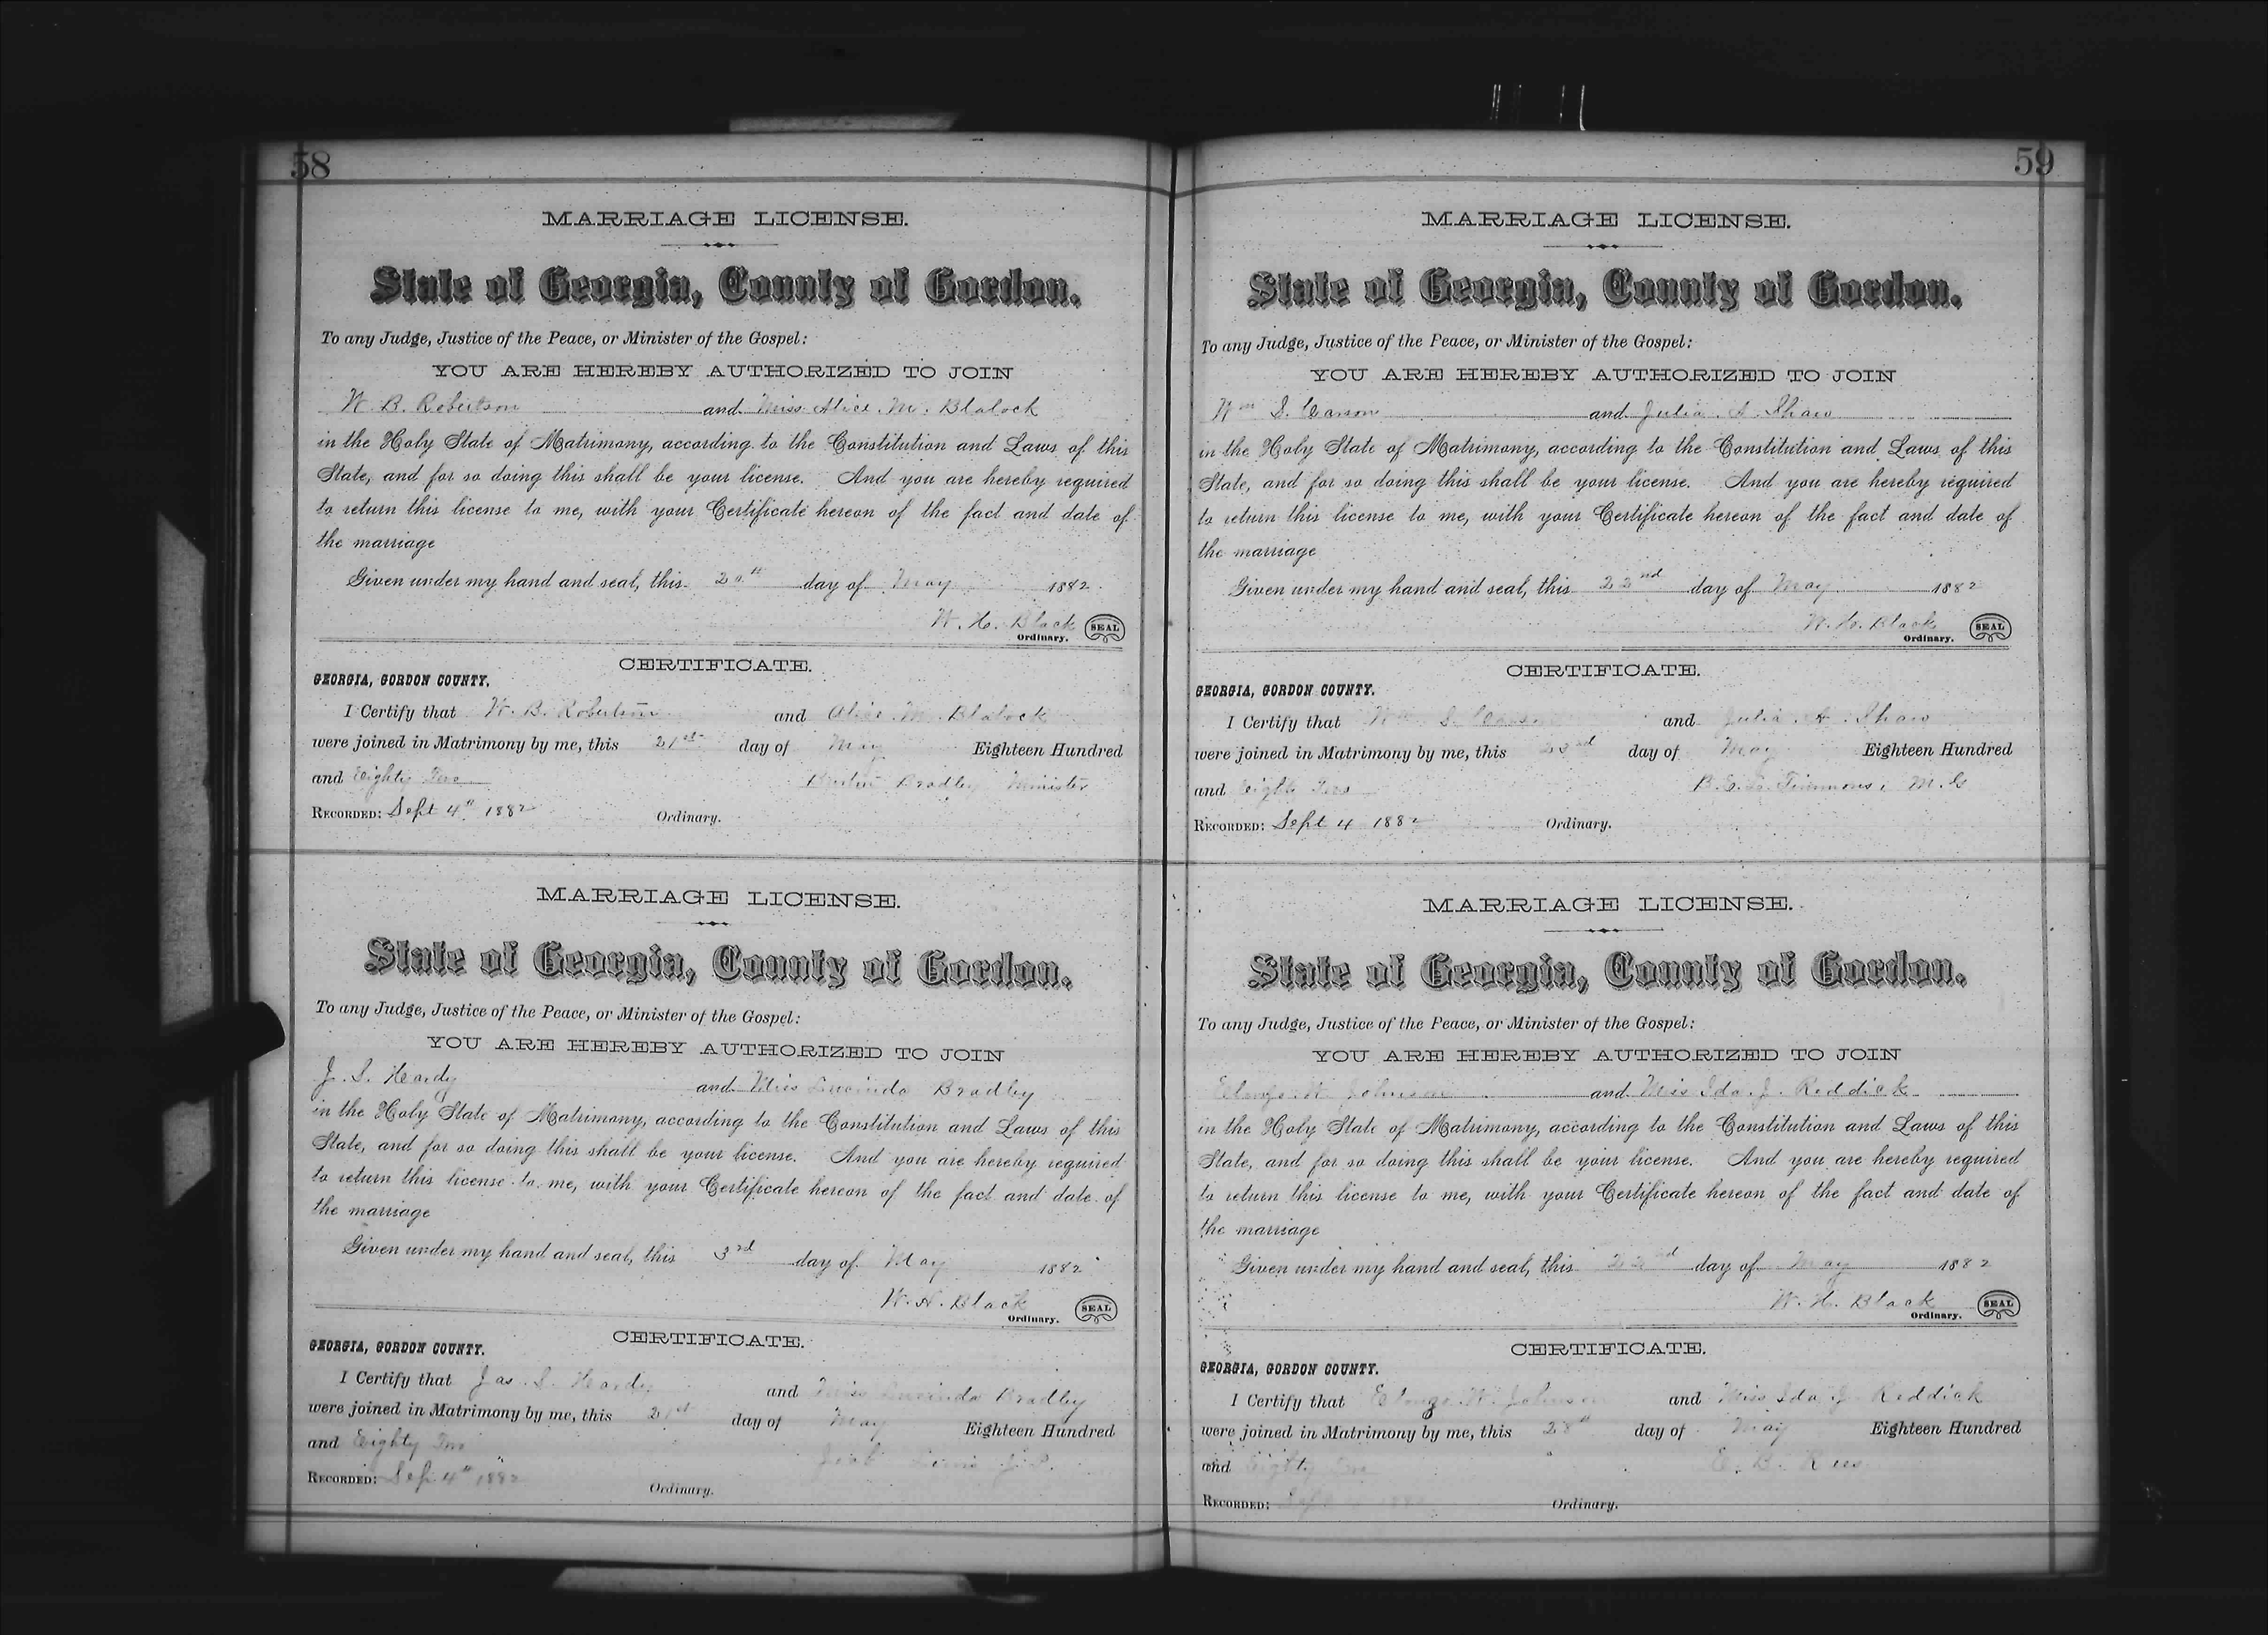 58
MARRIAGE LICENSE.
State of Georgia, County of Gordon.
To any Judge, Justice of the Peace, or Minister of the Gospel:
YOU ARE HEREBY AUTHORIZED TO JOIN
W. B. Robertson and Miss Alice M. Blalock
in the Holy State of Matrimony, according to the Constitution and Laws of this
State, and for so doing this shall be your license. And you are hereby required
to return this license to me, with your Certificate hereon of the fact and date of
the marriage
Given under my hand and seal, this 20th day of May 1882
W. H. Black SEAL
Ordinary.
CERTIFICATE.
GEORGIA, GORDON COUNTY.
I Certify that W. B. Robertson and Alice M. Blalock
were joined in Matrimony by me, this 21st day of May Eighteen Hundred
and Eighty Two
Bradley Minister
RECORDED: Sept 4th 1882 Ordinary.
MARRIAGE LICENSE.
State of Georgia, County of Gordon.
To any Judge, Justice of the Peace, or Minister of the Gospel:
YOU ARE HEREBY AUTHORIZED TO JOIN
J. S. Heardy and Miss Lucinda Bradley
in the Holy State of Matrimony, according to the Constitution and Laws of this
State, and for so doing this shall be your license. And you are hereby required
to return this license to me, with your Certificate hereon of the fact and date of
the marriage
Given under my hand and seal, this 3rd day of May 1882
W. H. Black SEAL
Ordinary.
CERTIFICATE.
GEORGIA, GORDON COUNTY.
I Certify that Jas. S. Heardy and Miss Lucinda Bradley
were joined in Matrimony by me, this 21st day of May Eighteen Hundred
and Eighty Two
J.P.
RECORDED: Sep 4th 1882 Ordinary.
59
MARRIAGE LICENSE.
State of Georgia, County of Gordon.
To any Judge, Justice of the Peace, or Minister of the Gospel:
YOU ARE HEREBY AUTHORIZED TO JOIN
Wm S. Carson and Julia A. Shaw
in the Holy State of Matrimony, according to the Constitution and Laws of this
State, and for so doing this shall be your license. And you are hereby required
to return this license to me, with your Certificate hereon of the fact and date of
the marriage
Given under my hand and seal, this 22nd day of May 1882
W. H. Black SEAL
Ordinary.
CERTIFICATE.
GEORGIA, GORDON COUNTY.
I Certify that Wm S. Carson and Julia A. Shaw
were joined in Matrimony by me, this 23rd day of May Eighteen Hundred
and Eighty Two
B. E. L. Timmons, M. G
RECORDED: Sept 4 1882 Ordinary.
MARRIAGE LICENSE.
State of Georgia, County of Gordon.
To any Judge, Justice of the Peace, or Minister of the Gospel:
YOU ARE HEREBY AUTHORIZED TO JOIN
W. Johnson and Miss Ida J. Reddick
in the Holy State of Matrimony, according to the Constitution and Laws of this
State, and for so doing this shall be your license. And you are hereby required
to return this license to me, with your Certificate hereon of the fact and date of
the marriage
Given under my hand and seal, this 22nd day of May 1882
W. H. Black SEAL
Ordinary.
CERTIFICATE.
GEORGIA, GORDON COUNTY.
I Certify that W. Johnson and Miss Ida J Reddick
were joined in Matrimony by me, this 28th day of May Eighteen Hundred
and Eighty Two
E. B. Rees
RECORDED: Ordinary.